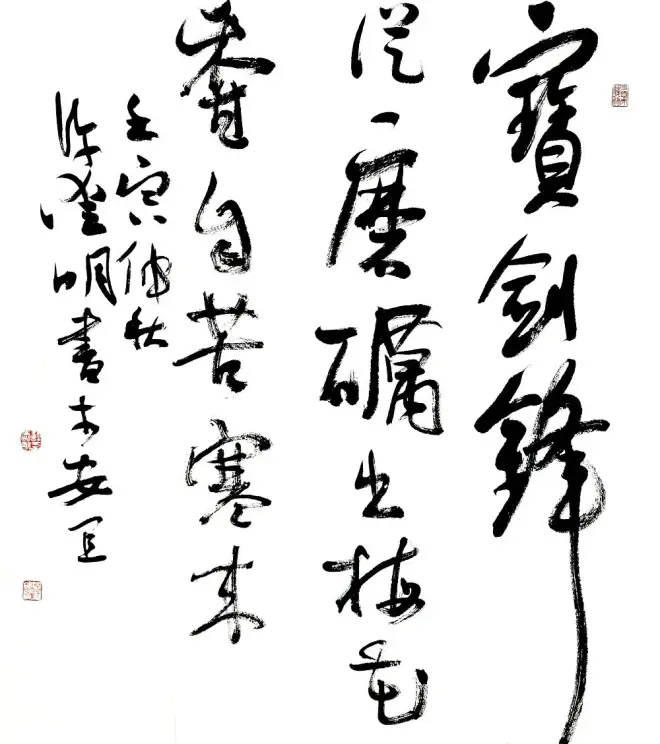 寶劍鋒
從磨礪出梅花
香自苦寒來
壬寅仲秋
許澄明書於安宜